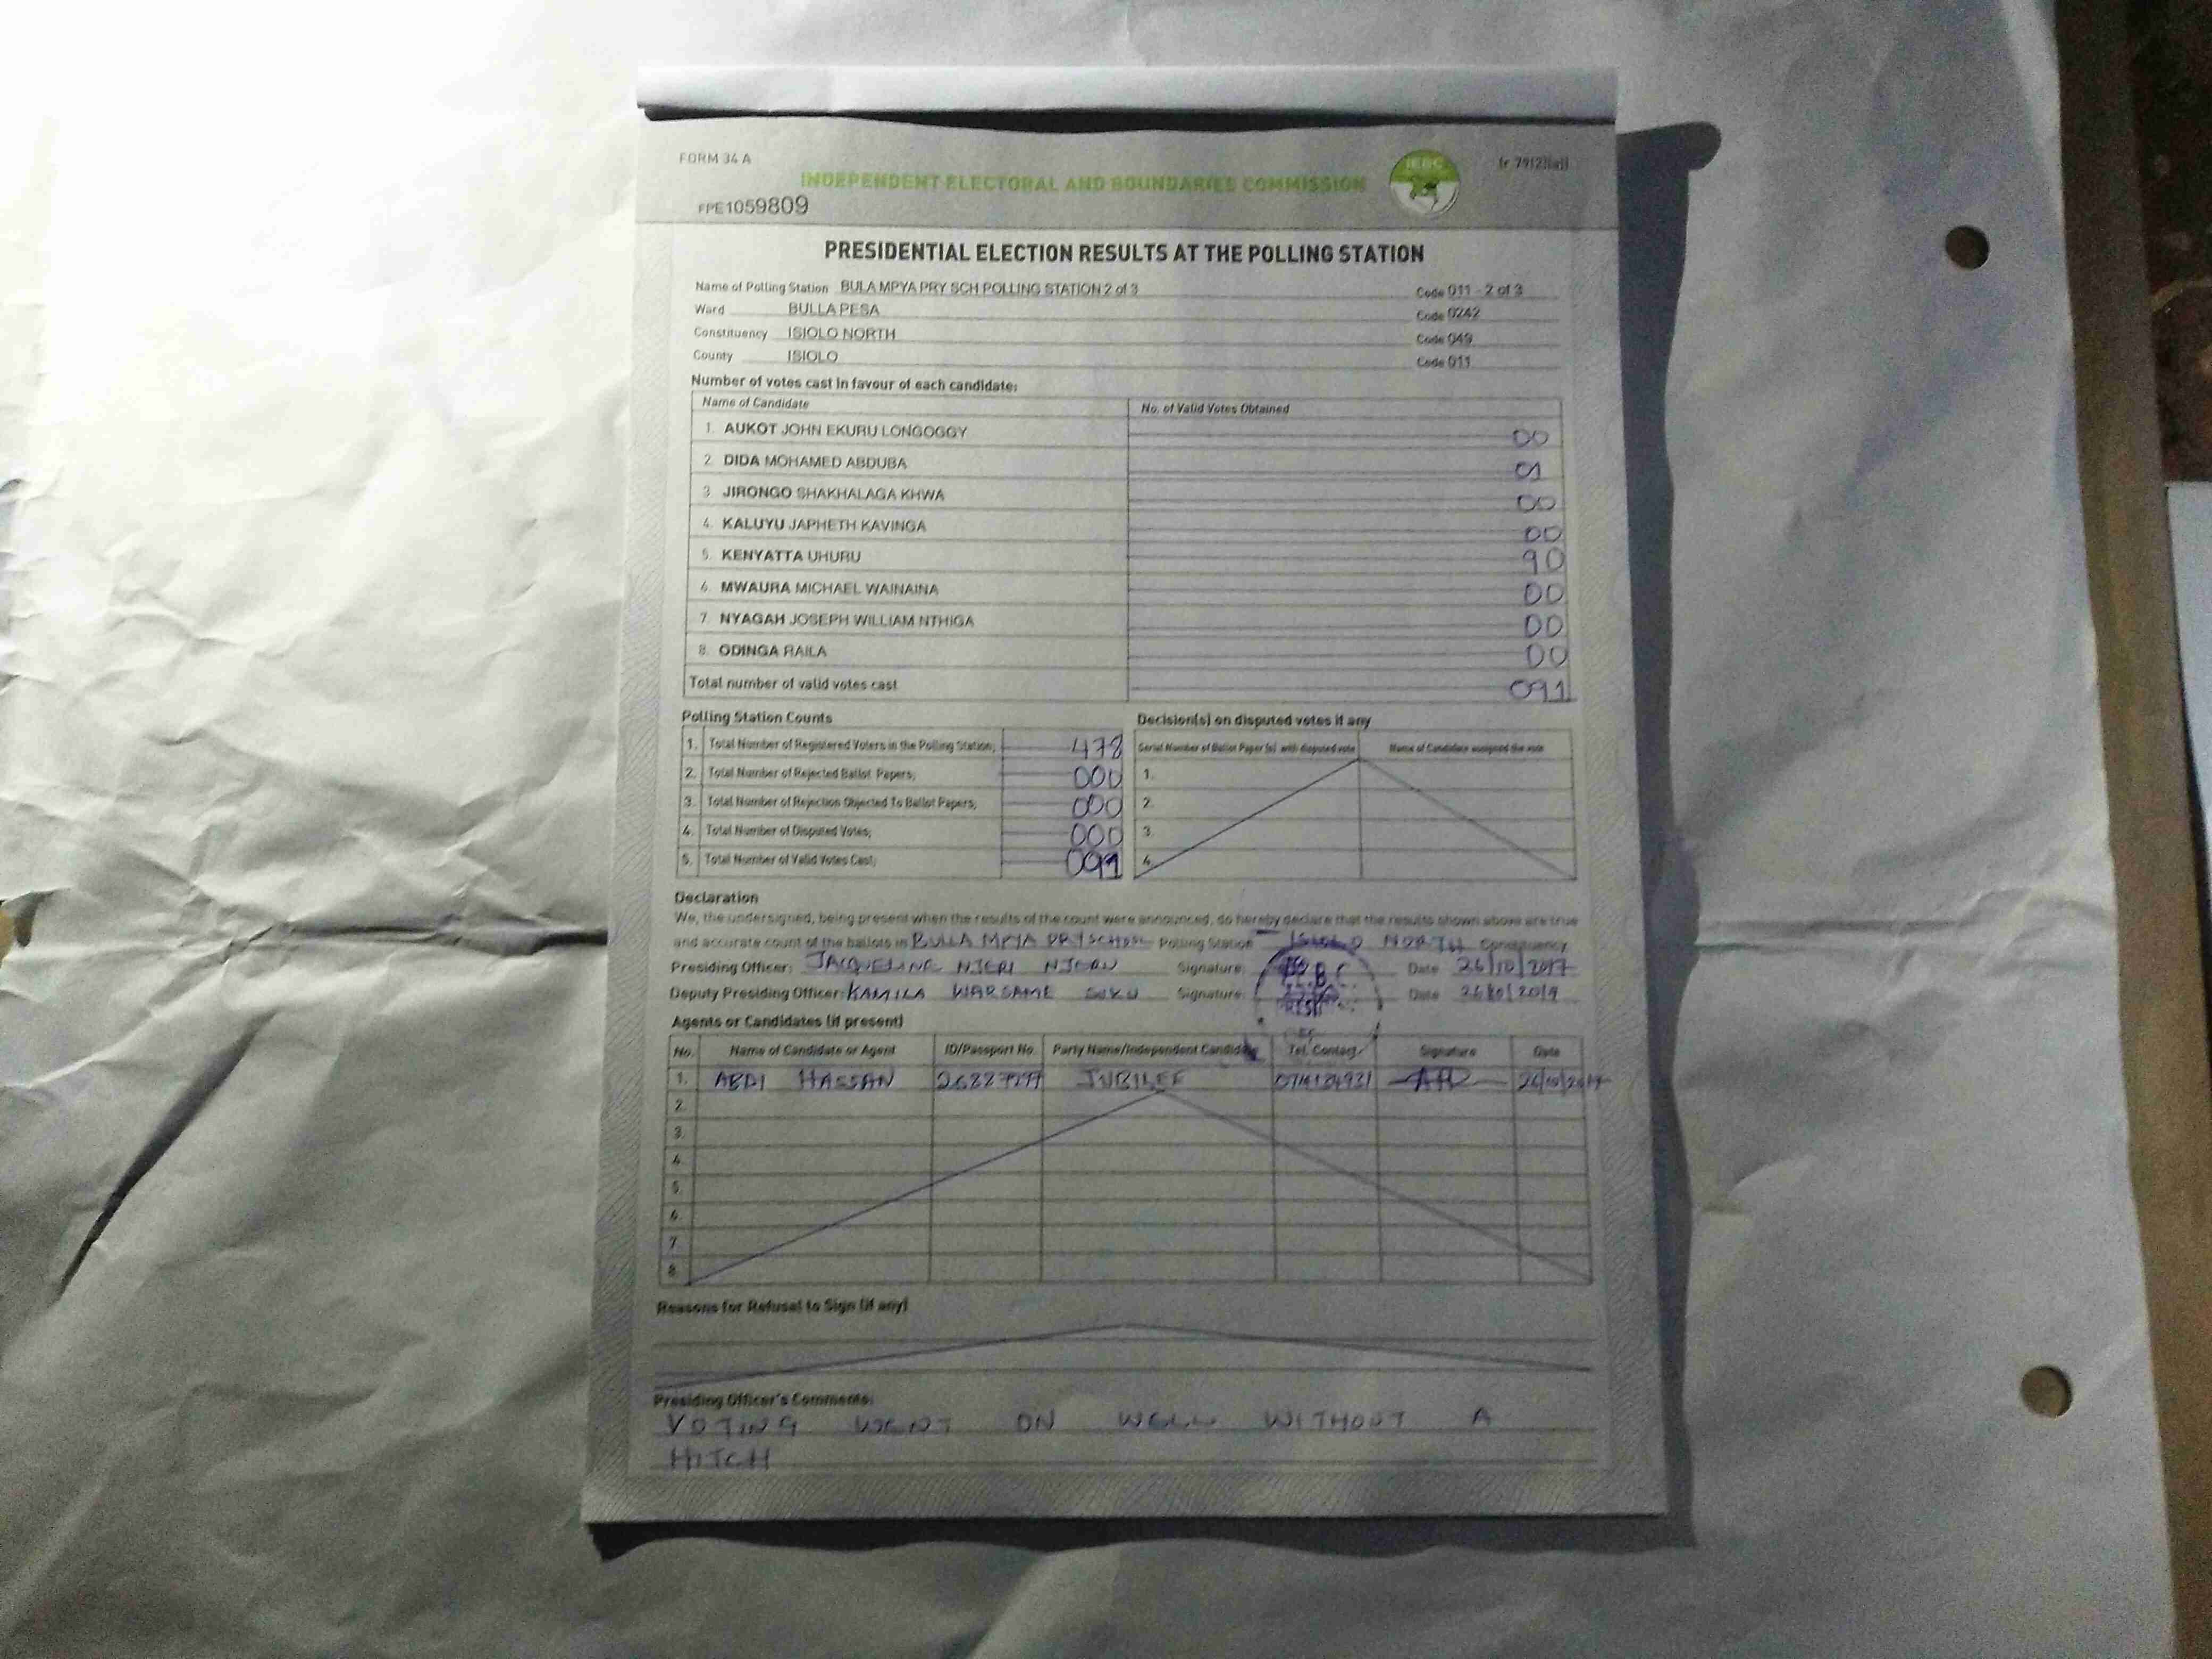 FORM 34 A
INDEPENDENT ELECTORAL AND BOUNDARIES COMMISSION
IEBC
FPE1059809
PRESIDENTIAL ELECTION RESULTS AT THE POLLING STATION
Name of Polling Station BULA MPYA PRY SCH POLLING STATION 2 of 3 Code 011 - 2 of 3
Ward BULLA PESA Code 0242
Constituency ISIOLO NORTH Code 049
County ISIOLO Code 011
Number of votes cast in favour of each candidate:
Name of Candidate No. of Valid Votes Obtained
1. AUKOT JOHN EKURU LONGOGGY 00
2. DIDA MOHAMED ABDUBA 01
3. JIRONGO SHAKHALAGA KHWA 00
4. KALUYU JAPHETH KAVINGA 00
5. KENYATTA UHURU 90
6. MWAURA MICHAEL WAINAINA 00
7. NYAGAH JOSEPH WILLIAM NTHIGA 00
8. ODINGA RAILA 00
Total number of valid votes cast 091
Polling Station Counts Decision(s) on disputed votes if any
1. Total Number of Registered Voters in the Polling Station; 478 Serial Number of Ballot Paper (s) with disputed vote Name of Candidate assigned the vote
2. Total Number of Rejected Ballot Papers; 000 1.
3. Total Number of Rejection Objected To Ballot Papers; 000 2.
4. Total Number of Disputed Votes; 000 3.
5. Total Number of Valid Votes Cast; 091 4.
Declaration
We, the undersigned, being present when the results of the count were announced, do hereby declare that the results shown above are true
and accurate count of the ballots in BULLA MPYA PRY SCHOOL Polling Station ISIOLO NORTH Constituency
Presiding Officer: JACQUELINE NJERI Signature: Date 26/10/2017
Deputy Presiding Officer: KAMILA WARSAME Signature: Date
Agents or Candidates (if present)
No. Name of Candidate or Agent ID/Passport No. Party Name/Independent Candidate Tel. Contact Signature Date
1. ABDI HASSAN JUBILEE 26/10/2017
2.
3.
4.
5.
6.
7.
8.
Reasons for Refusal to Sign (if any)
Presiding Officer's Comments:
VOTING WENT ON WELL WITHOUT A
HITCH